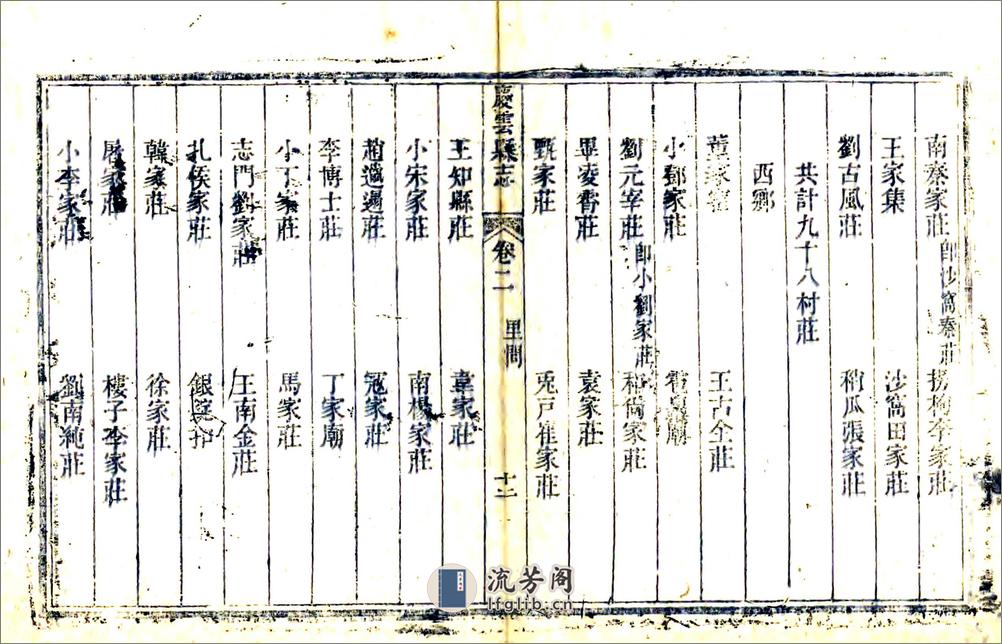 南秦家莊 即沙窩秦莊 拐梅李家莊
王家集 沙窩田家莊
劉古風莊 稍瓜張家莊
共計九十八村莊
西鄉
王古全莊
小鄭家莊
劉元宰莊 即小劉家莊 家莊
畢凌香莊 袁家莊
甄家莊 兎戸崔家莊
慶雲縣志 卷二 里問 十二
王知縣莊 韋家莊
小宋家莊 南楊家莊
趙邋遢莊 冦家莊
李博士莊 丁家廟
小丁家莊 馬家莊
志門劉家莊 王南金莊
扎侯家莊 銀
韓家莊 徐家莊
屠家莊 樓子李家莊
小李家莊 劉南純莊
流芳阁
lfglib.cn